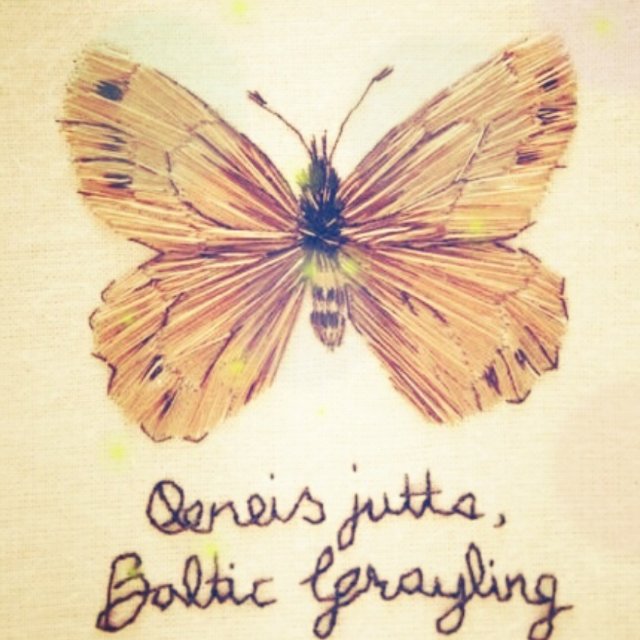 Oeneis jutta,
Baltic Grayling